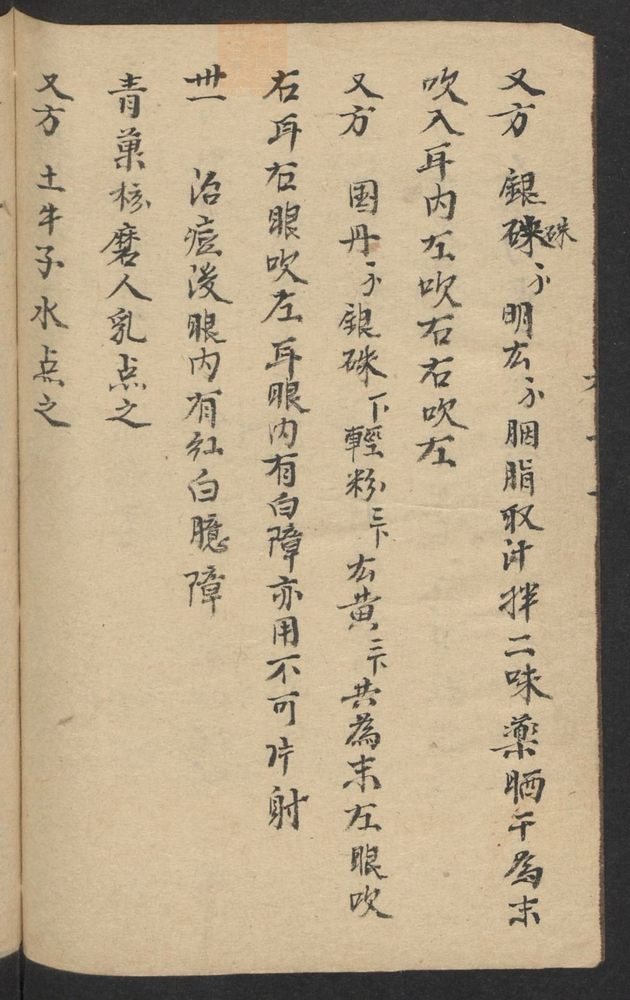 又方 銀硃硃 明 胭脂取汁拌二味藥晒干為末
吹入耳内左吹右右吹左
又方 国丹 銀硃 輕粉 黄 共為末左眼吹
右耳右眼吹左耳眼内有白障亦用不可片射
卅一 治痘後眼内有紅白臆障
青菓核磨人乳点之
又方 土牛子水点之